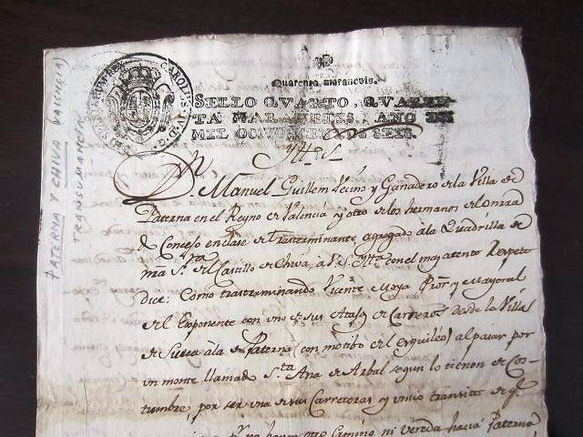 Quarenta maravedis.
SELLO QVARTO, QVAREN-
TA MARAVEDIS, AÑO DE
MIL OCHOCIENTOS SEIS.
CAROLUS IV D.G.
PATERNA Y CHIVA (VALENCIA)
TRANSUMANCIA
Dn Manuel Guillem Vecino y Ganadero de la Villa de
Paterna en el Reyno de Valencia y otro de los hermanos del Onrado
Concejo en clase de Trasterminante, agregado a la Quadrilla de
de Castillo de Chiva, a V.S. con el mas atento Respeto
Dice: Como trasterminando Vicente Moya Pror y Mayoral
del Exponente con uno de sus Atajos de Carneros desde la Villa
de Sueca a la de Paterna (con motibo del esquileo) al pasar por
un monte llamado Sta Ana de Arbal segun lo tienen de Cos-
tumbre, por ser una de sus Carreteras y unico transito de
no haver otro Camino ni vereda hacia Paterna